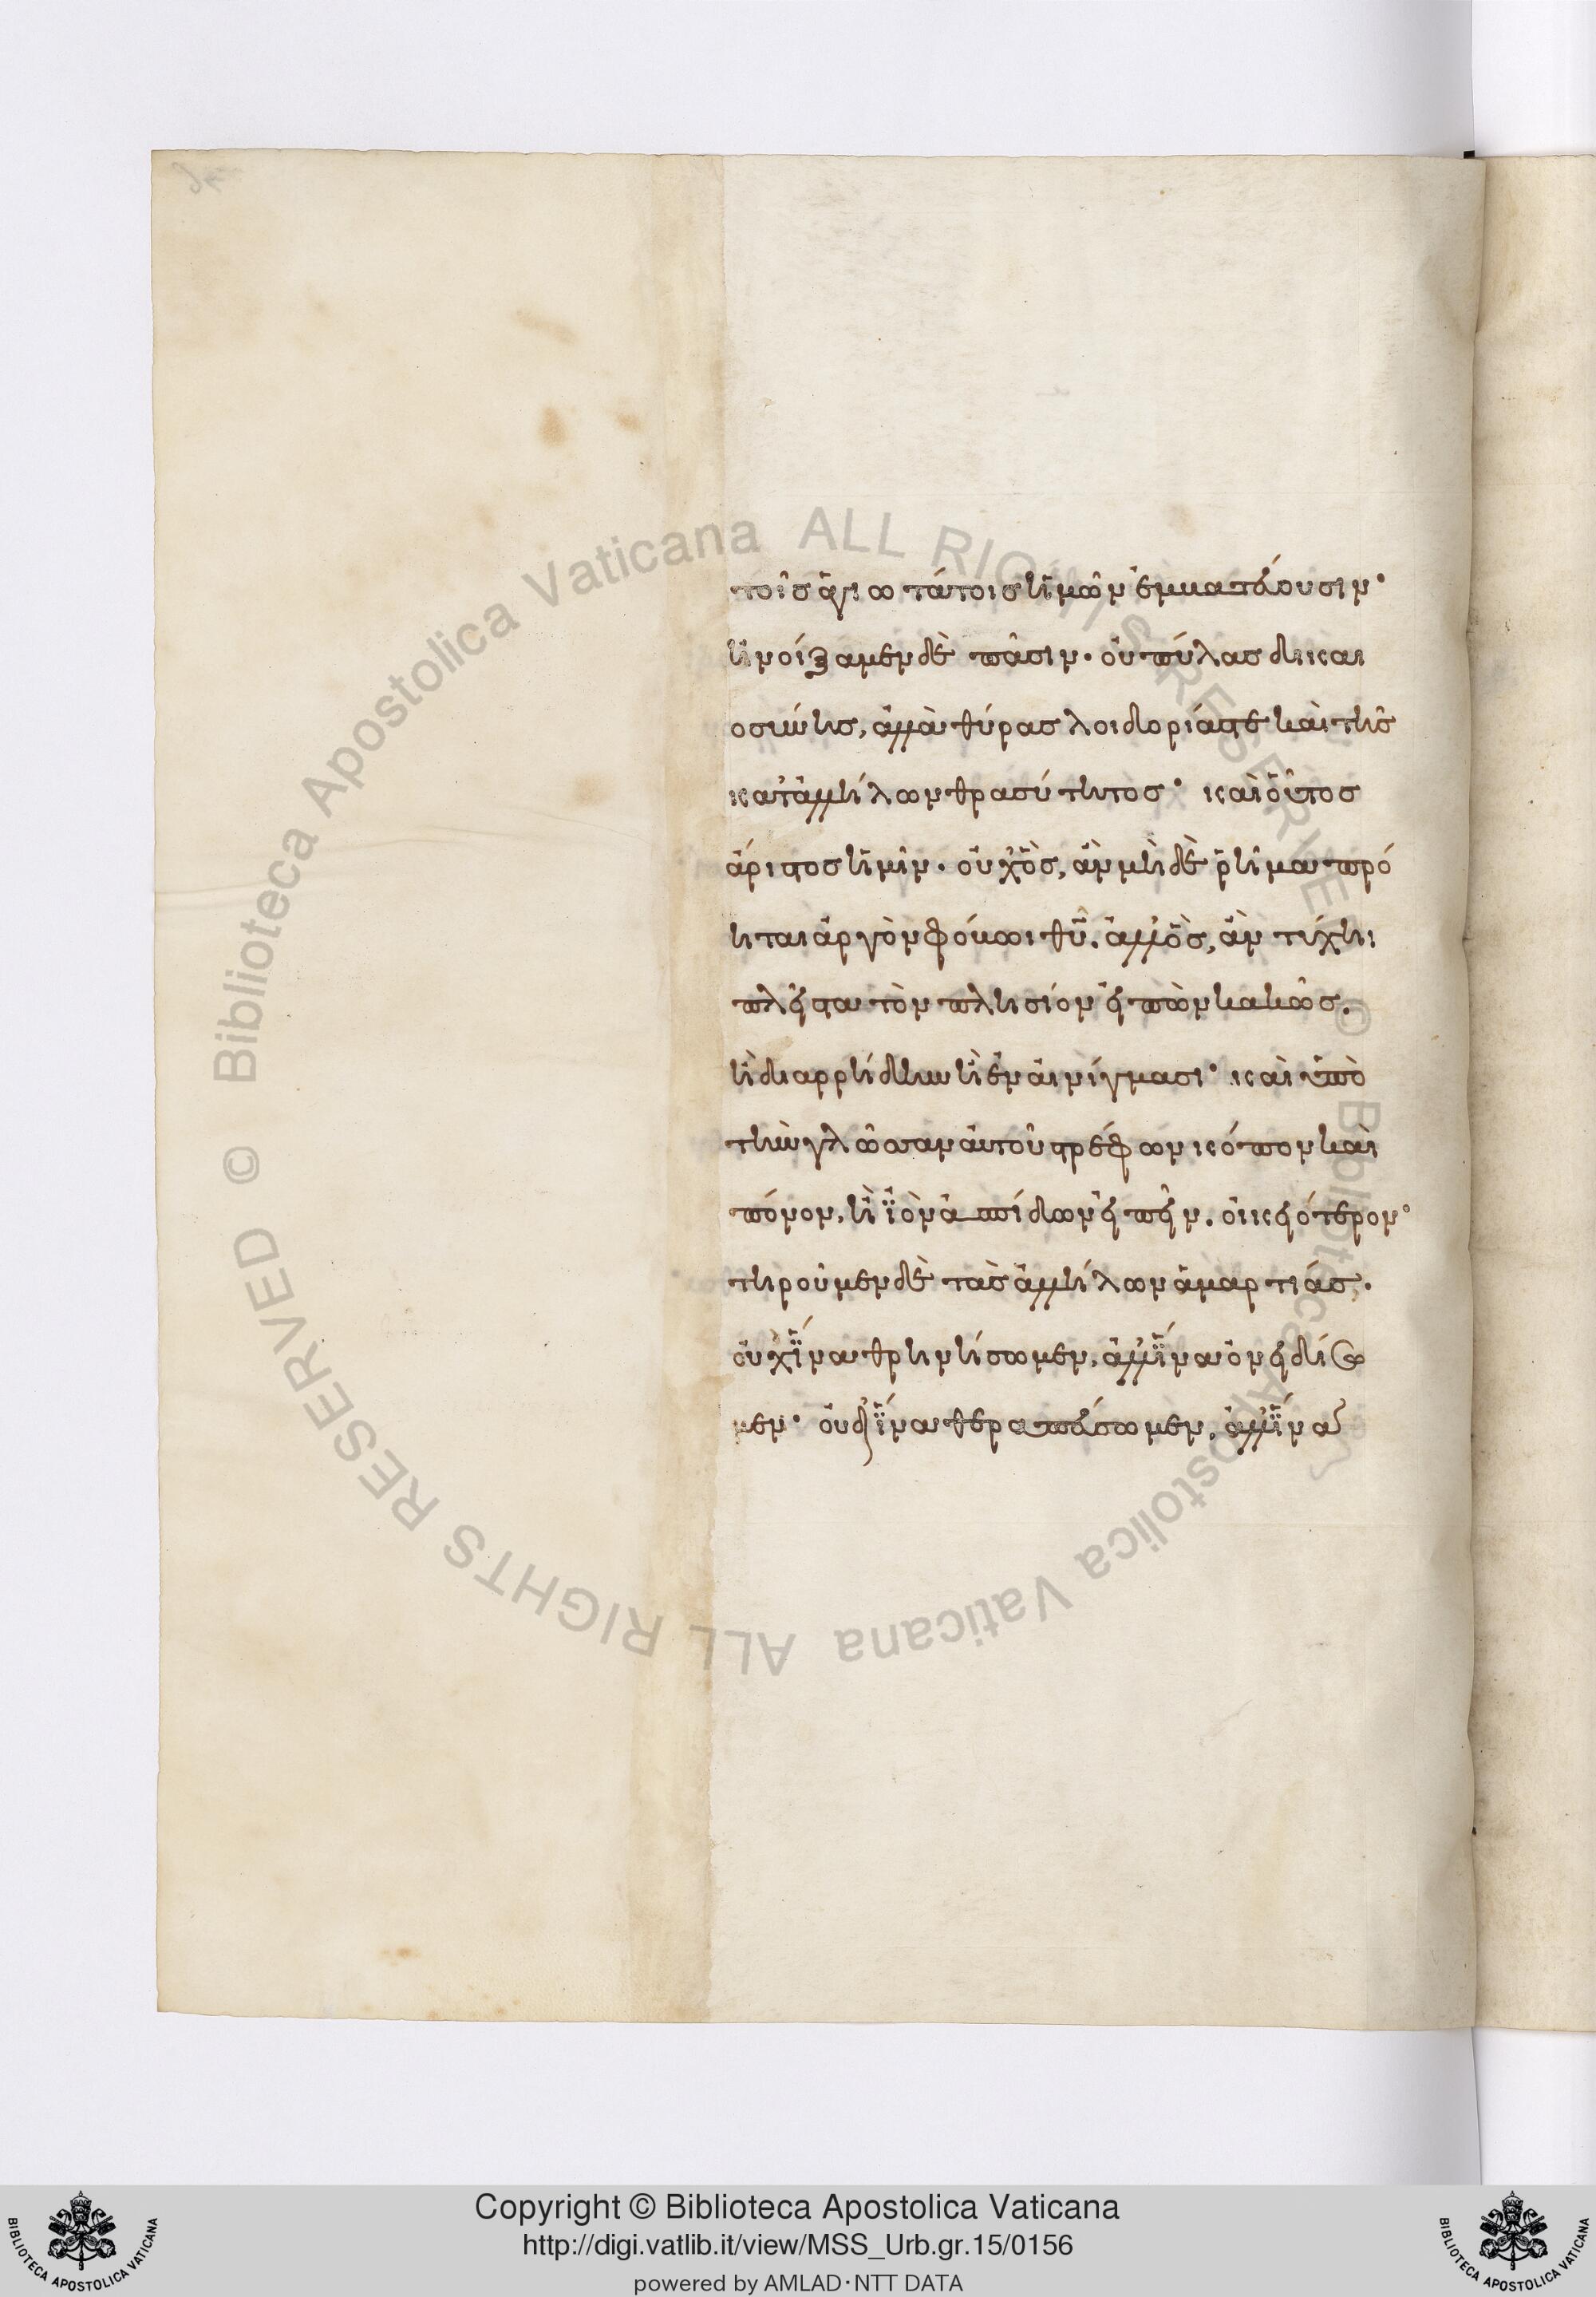 τοῖς ἁγιωτάτοις ἡμῶν ἐμματεύουσιν·
ἠνοίξαμεν δὲ πᾶσιν· οὐ πύλας δικαι
οσύνης, ἀλλὰ θύρας λοιδορίας τε καὶ τῆς
κατἀλλήλων θρασύτητος· καὶ οὗτος
ἄριστος ἡμῖν· οὐχ ὃς, ἂν μηδὲ ῥῆμα πρό
ηται ἀργὸν φόβωι θῦ. ἀλλ' ὃς, ἂν τύχηι
πλεῖστα τὸν πλησίον εἰπὼν κακῶς.
ἢ διαρρήδην ἢ ἐν αἰνίγμασι· καὶ ὑπὸ
τὴν γλῶσσαν αὐτοῦ στρέφων κόπον καὶ
πόνον, ἢ ἰὸν ἀσπίδων εἰπεῖν. οἰκειότερον·
τηροῦμεν δὲ τὰς ἀλλήλων ἁμαρτίας.
οὐχ ἵνα θρηνήσωμεν, ἀλλ' ἵνα ὀνειδίσω
μεν· οὐδ' ἵνα θεραπεύσωμεν, ἀλλ' ἵνα
Copyright © Biblioteca Apostolica Vaticana
http://digi.vatlib.it/view/MSS_Urb.gr.15/0156
powered by AMLAD·NTT DATA
BIBLIOTECA APOSTOLICA VATICANA
BIBLIOTECA APOSTOLICA VATICANA
© Biblioteca Apostolica Vaticana ALL RIGHTS RESERVED
© Biblioteca Apostolica Vaticana ALL RIGHTS RESERVED